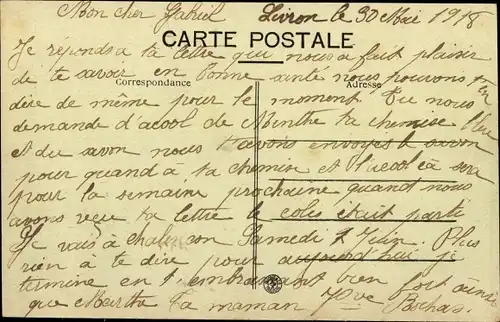 Mon cher Gabriel Livron le 30 Mai 1918
CARTE POSTALE
Je réponds a ta lettre qui nous a fait plaisir
de te savoir en bonne santé nous pouvons t'en
Correspondance Adresse
dire de même pour le moment. Tu nous
demande d'acool de Menthe ta chemise bleu
et du savon nous t'avons envoyés le savon
pour quand à ta chemise et l'acool ça sera
pour la semaine prochaine quand nous
avons reçu ta lettre le colis était parti
Je vais à chalencon Samedi 1 Juin. Plus
rien à te dire pour aujourd'hui je
termine en t'embrassant bien fort ainsi
que Marthe Ta maman Vve Bochas